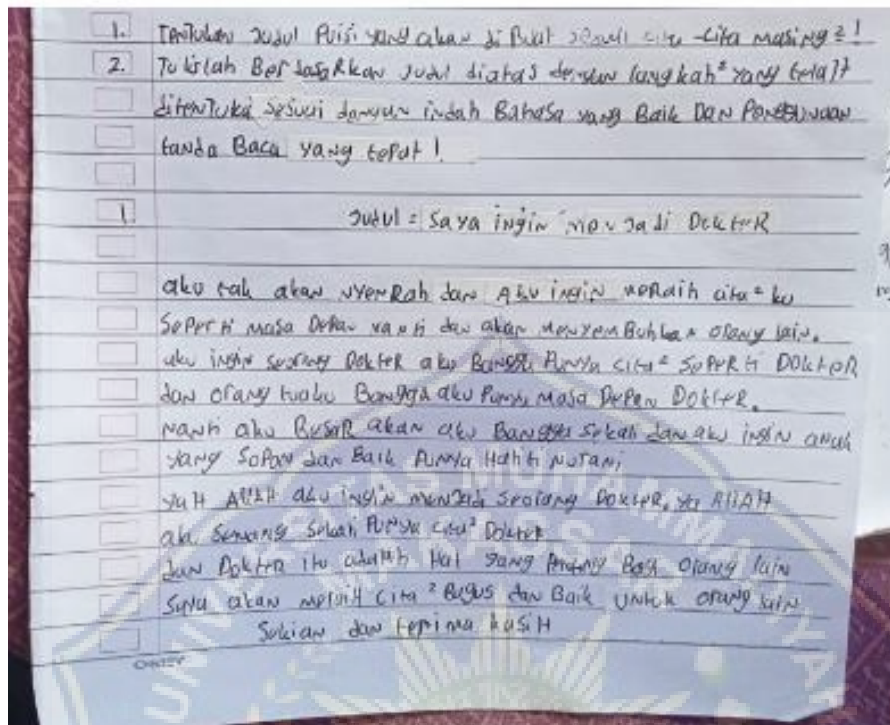 1. TenTukan Judul Puisi yang akan di Buat sesuai cita-cita masing²!
2. Tulislah Berdasarkan Judul diatas dengan langkah² yang telah
ditenTuka sesuai dengan indah Bahasa yang Baik Dan Penggunaan
tanda Baca yang tepat!
1. Judul = Saya ingin menJadi DokteR
aku tak akan nyeRah dan Aku ingin meRaih cita²ku
SePerti masa Depan nanti dan akan menyemBuhkan orang lain.
aku ingin seorang DokteR aku Bangga Punya cita² SePeRti DokteR
dan orang tuaku Bangga aku Punya masa DePan DokteR.
Nanti aku BesaR akan aku Bangga sekali dan aku ingin anak
yang SoPan dan Baik Punya Hati Nurani,
yaH AllAH aku ingin menJadi Seorang DokteR, ya AllAH
aku Senang Sekali Punya cita² DokteR
dan DokteR itu adalah Hal yang Penting Bagi orang lain
Saya akan meraiH Cita² Bagus dan Baik untuk orang lain
Sekian dan terima kasiH
UNIVERSITAS MUHAMMADIYAH
MAKASSAR